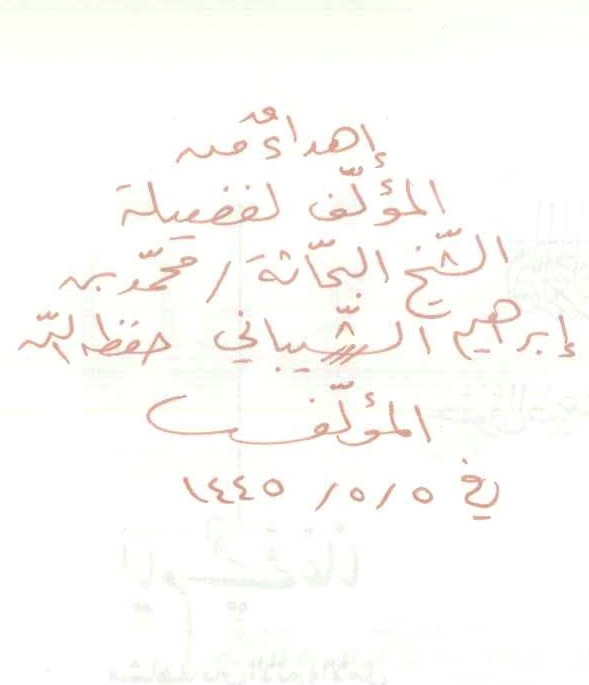 إهداءٌ من
المؤلّف لفضيلة
الشّيخ البحّاثة / محمّد بن
إبراهيم الشّيباني حفظه اللّه
المؤلّف
في ٥/٥/١٤٤٥